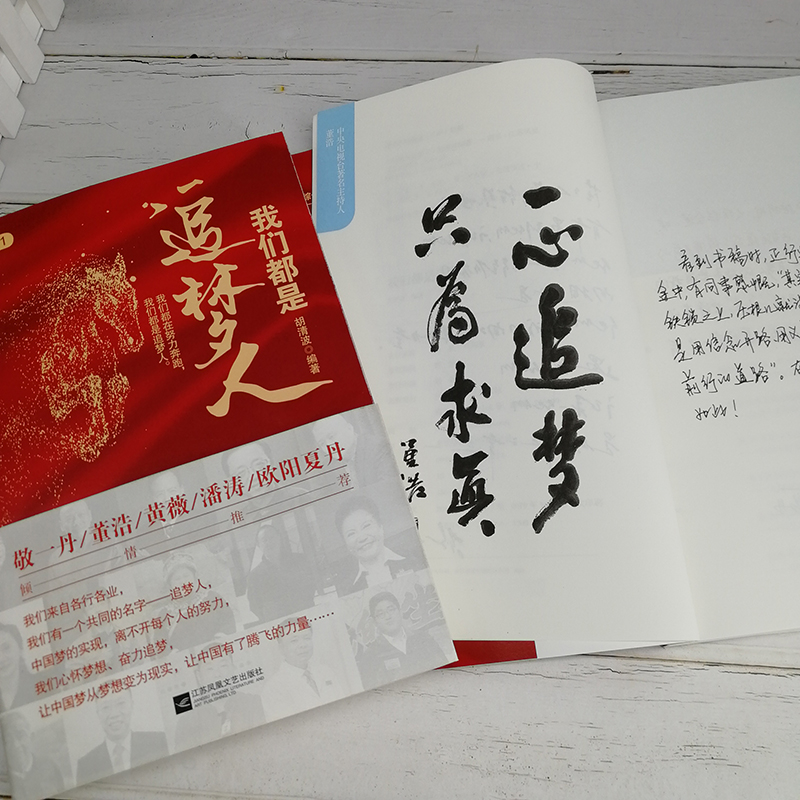 1
我们都是
追梦人
我们都在努力奔跑，
我们都是追梦人。
胡清波◎编著
敬一丹/董浩/黄薇/潘涛/欧阳夏丹
倾情推荐
我们来自各行各业，
我们有一个共同的名字——追梦人，
中国梦的实现，离不开每个人的努力，
我们心怀梦想、奋力追梦，
让中国梦从梦想变为现实，让中国有了腾飞的力量……
江苏凤凰文艺出版社
JIANGSU PHOENIX LITERATURE AND
ART PUBLISHING LTD.
中央电视台著名主持人
董浩
一心追梦
只為求真
董浩
看到书稿时，正行
金中，有同事感慨：“其实
铁锁之上，压根儿就没
是用信念开路，用义
前行的道路”。在
如此！